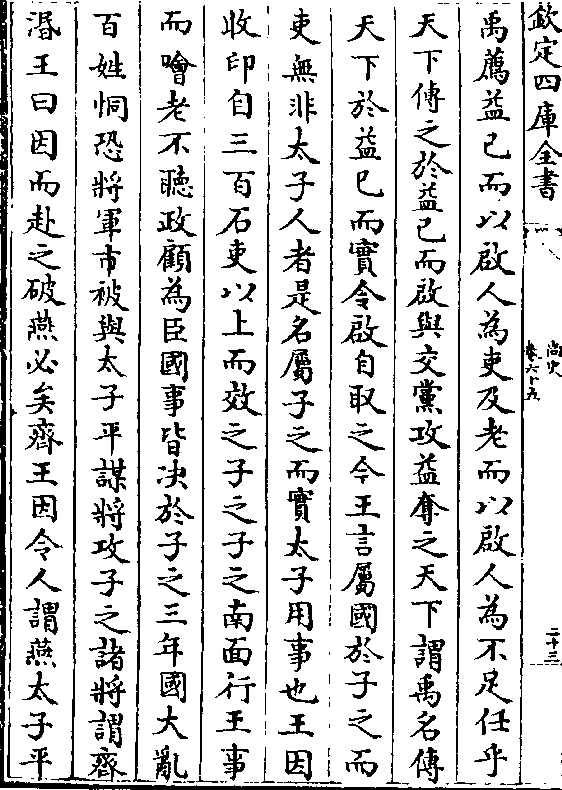 欽定四庫全書
尚史
卷六十五
二十三
禹薦益已而以啟人為吏及老而以啟人為不足任乎
天下傳之於益已而啟與交黨攻益奪之天下謂禹名傳
天下於益已而實令啟自取之今王言屬國於子之而
吏無非太子人者是名屬子之而實太子用事也王因
收印自三百石吏以上而效之子之子之南面行王事
而噲老不聽政顧為臣國事皆决於子之三年國大亂
百姓恫恐將軍市被與太子平謀將攻子之諸將謂齊
湣王曰因而赴之破燕必矣齊王因令人謂燕太子平